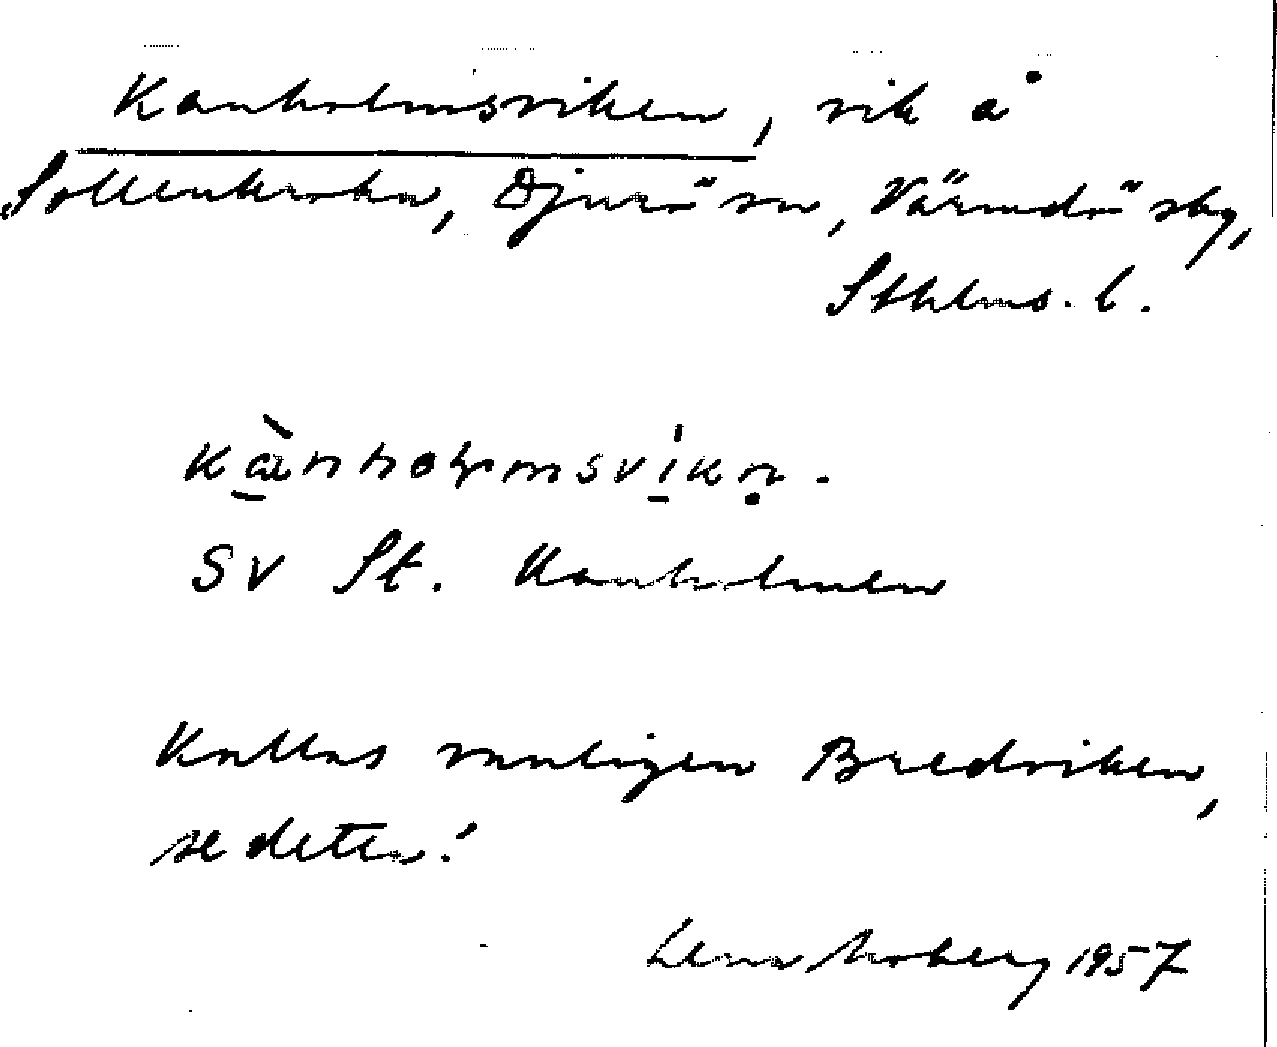 Kanholmsviken, vik å
Sollenkroka, Djurö sn, Värmdö sbg,
Sthlms. l.
kànholmsvikn.
SV St. Kanholmen
Kallas vanligen Bredviken,
se detta!
Lena Moberg 1957